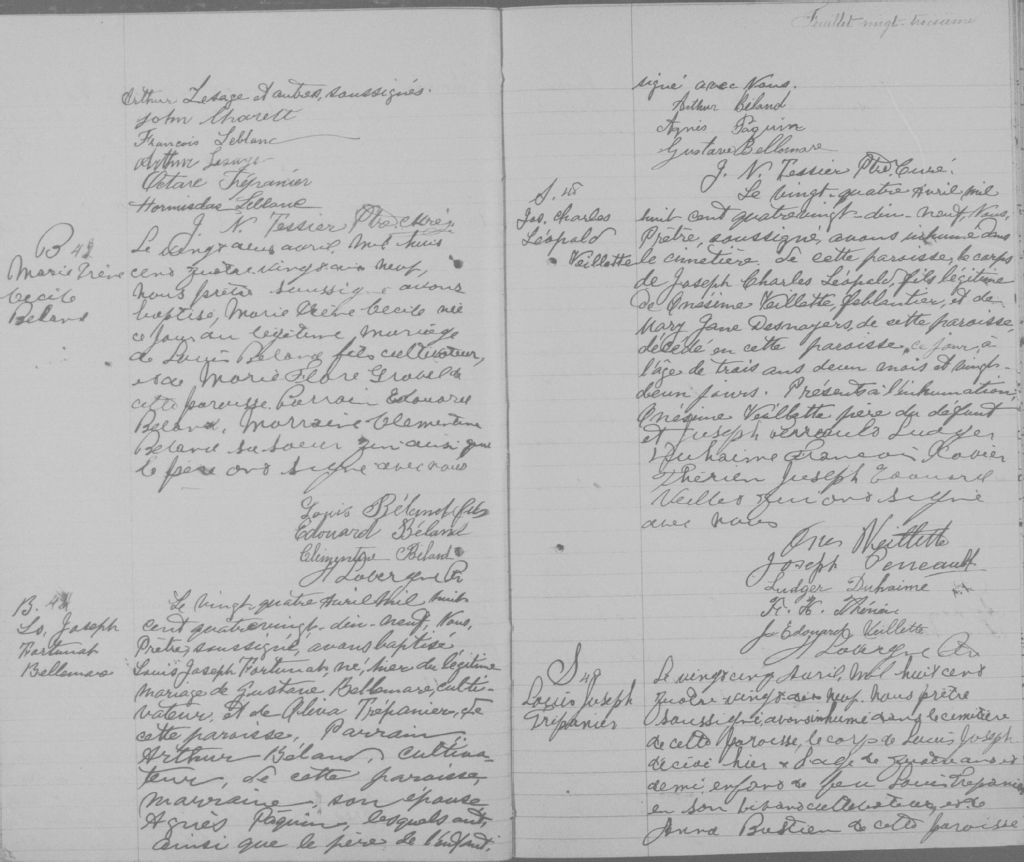 Arthur Lesage et autres, soussignés.
John Charett
François Leblanc
Arthur Lesage
Octave Trépanier
Hormisdas Leblanc
J. N. Tessier Ptre. curé.
B
Marie Irène
Cecile
Beland
Le vingt deux avril, Mil huit
cent quatre vingt dix neuf,
nous prêtre soussigné avons
baptisé, Marie Irène Cecile née
ce jour du légitime mariage
de Louis Beland fils cultivateur,
et de Marie Flore Gravel de
cette paroisse. Parrain Edouard
Beland, Marraine Clementine
Beland sa soeur qui ainsi que
le père ont signé avec nous
Louis Béland fils
Edouard Béland
Clémentine Béland
Lavergne Ptr
B.
Ls. Joseph
Fortunat
Bellemare
Le vingt-quatre Avril Mil huit
cent quatrevingt-dix-neuf, Nous,
Prêtre, soussigné, avons baptisé
Louis Joseph Fortunat, né, hier du légitime
mariage de Gustave Bellemare, culti-
vateur, et de Aléva Trépanier, de
cette paroisse, Parrain,
Arthur Béland, cultiva-
teur, de cette paroisse,
marraine, son épouse
Agnès Paquin, lesquels ont
ainsi que le père de l'enfant,
Feuillet vingt-troisième
signé avec Nous.
Arthur Béland
Agnès Paquin
Gustave Bellemare
J. N. Tessier Ptre. Curé.
S.
Jos. Charles
Léopold
Veillette
Le vingt-quatre Avril mil
huit cent quatrevingt-dix-neuf, Nous,
Prêtre, soussigné, avons inhumé dans
le cimetière de cette paroisse, le corps
de Joseph Charles Léopold, fils légitime
de Onésime Veillette, ferblantier, et de
Mary Jane Desnoyers, de cette paroisse,
décédé en cette paroisse, ce jour, à
l'âge de trois ans deux mois et vingt-
deux jours. Présents à l'inhumation,
Onésime Veillette père du défunt
et Joseph Ludger
Duhaime François Xavier
Thérien Joseph Edouard
qui ont signé
avec nous
Ones Veillette
Joseph Perreault
Ludger Duhaime
F. X. Thérien
J Edouard Veillette
Lavergne Ptr
S 48
Louis Joseph
Trépanier
Le vingt cinq Avril, Mil huit cent
quatre vingt dix neuf. Nous prêtre
soussigné, avons inhumé dans le cimetière
de cette paroisse, le corps de Louis Joseph
décédé hier à l'age de quatre ans et
demi, enfant de feu Louis Trépanier
en son vivant cultivateur, et de
Anna Bastien de cette paroisse